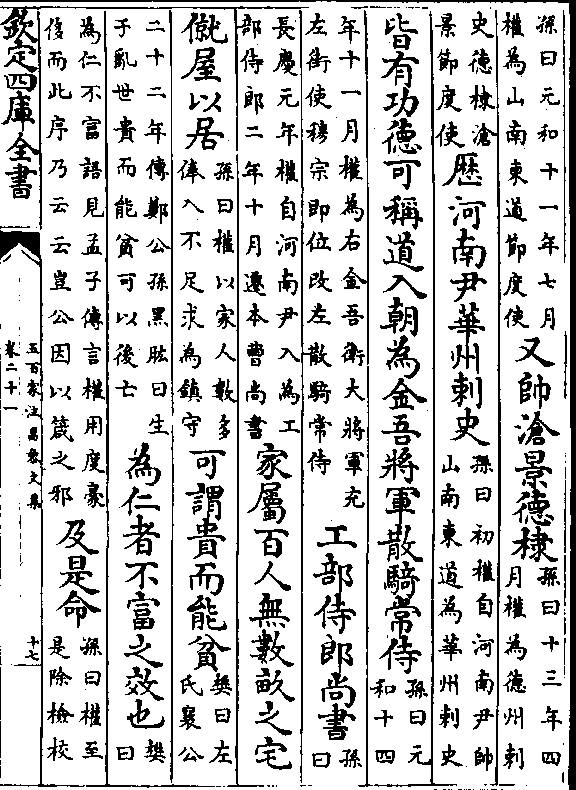 孫曰元和十一年七月
權為山南東道節度使
又帥滄景德棣
孫曰十三年四
月權為德州刺
史德棣滄
景節度使
歷河南尹華州刺史
孫曰初權自河南尹帥
山南東道為華州刺史
皆有功德可稱道入朝為金吾將軍散騎常侍
孫曰元
和十四
年十一月權為右金吾衛大將軍充
左街使穆宗即位改左散騎常侍
工部侍郎尚書
孫
曰
長慶元年權自河南尹入為工
部侍郎二年十月遷本曹尚書
家屬百人無數畝之宅
僦屋以居
孫曰權以家人數多
俸入不足求為鎮守
可謂貴而能貧
樊曰左
氏襄公
二十二年傳鄭公孫黑肱曰生
于亂世貴而能貧可以後亡
為仁者不富之效也
樊
曰
為仁不富語見孟子傳言權用度豪
侈而此序乃云云豈公因以箴之邪
及是命
孫曰權至
是除檢校
欽定四庫全書
五百家注昌黎文集
卷二十一
十七